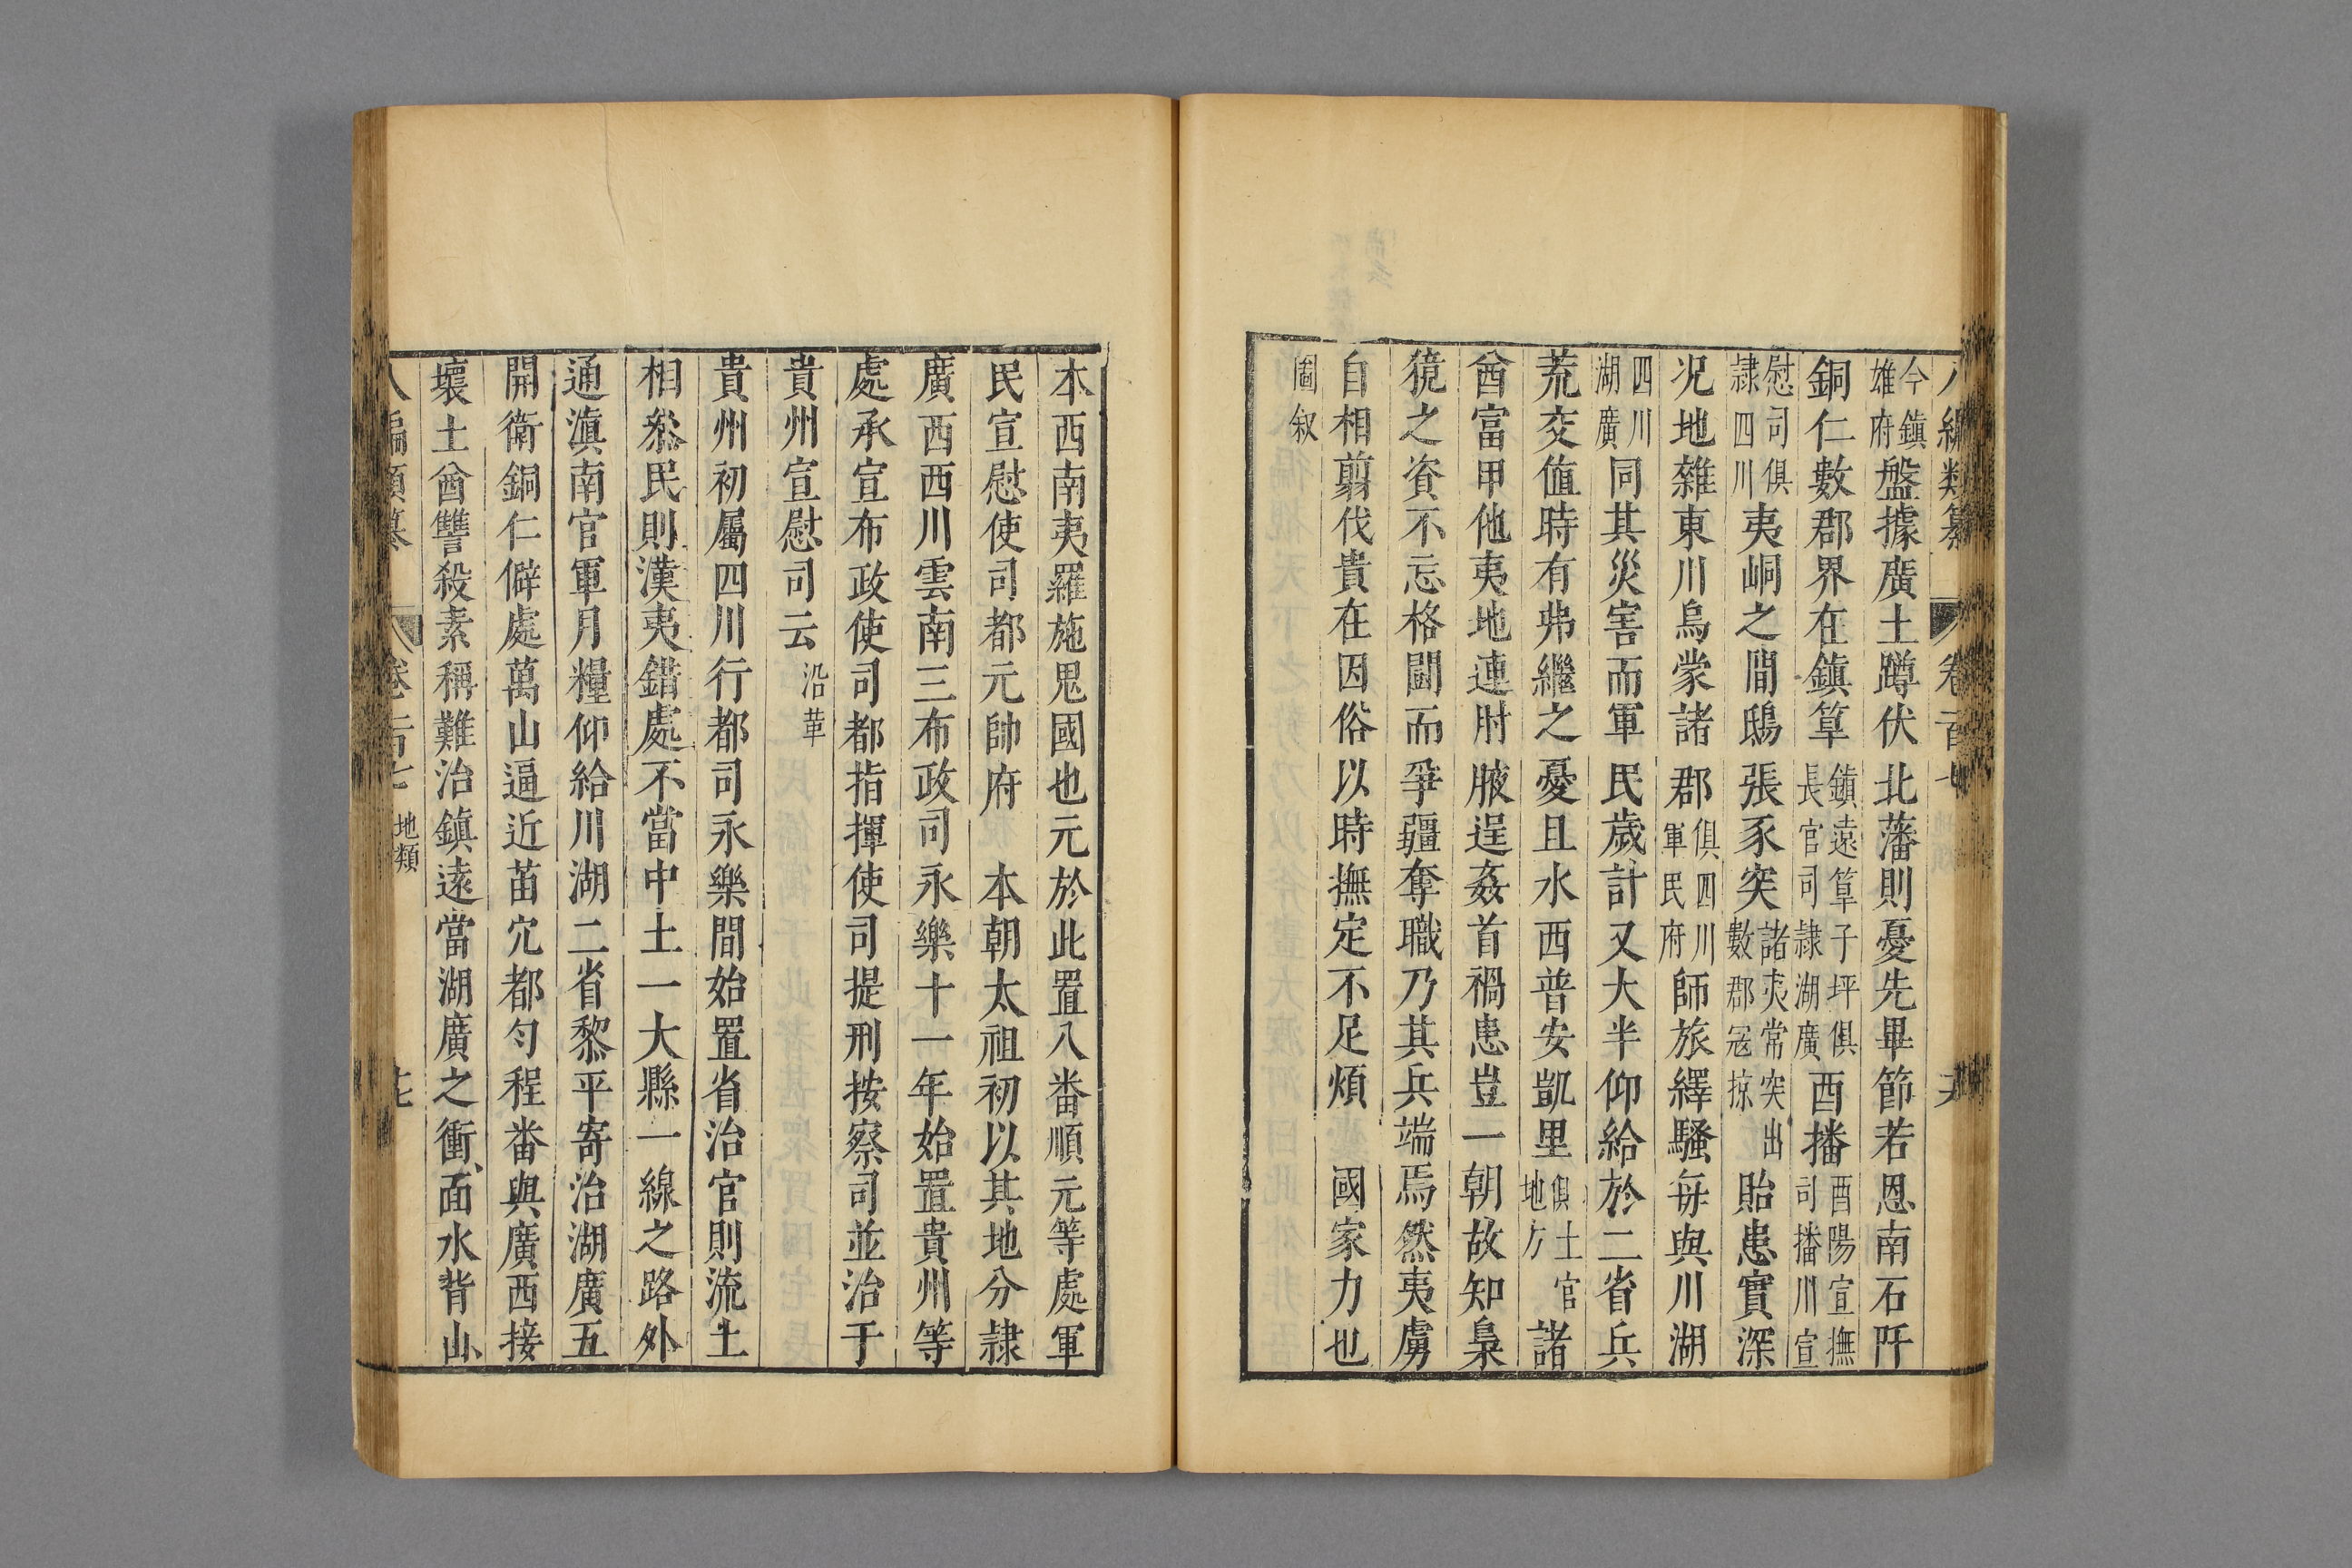 八編類纂 卷一百七
今鎮雄府盤據廣土蹲伏北藩則憂先畢節若恩南石阡
銅仁數郡界在鎮筸鎮遠筸子坪俱長官司隷湖廣酉播酉陽宣撫司播川宣
慰司俱隷四川夷峒之間鴟張豕突諸夷常突出數郡冦掠貽患實深
况地雜東川烏蒙諸郡俱四川軍民府師旅繹騷每與川湖
四川湖廣同其災害而軍民歲計又大半仰給於二省兵
荒交值時有弗繼之憂且水西普安凱里俱土官地方諸
酋富甲他夷地連肘腋逞姦首禍患豈一朝故知梟
獍之資不忘格鬬而爭疆奪職乃其兵端焉然夷虜
自相翦伐貴在因俗以時撫定不足煩 國家力也
圖叙
本西南夷羅施鬼國也元於此置八畨順元等處軍
民宣慰使司都元帥府 本朝太祖初以其地分隷
廣西西川雲南三布政司永樂十一年始置貴州等
處承宣布政使司都指揮使司提刑按察司並治于
貴州宣慰司云沿革
貴州初屬四川行都司永樂間始置省治官則流土
相叅民則漢夷錯處不當中土一大縣一線之路外
通滇南官軍月糧仰給川湖二省黎平寄治湖廣五
開衛銅仁僻處萬山逼近苗穴都勻程畨與廣西接
壤土酋讐殺素稱難治鎮遠當湖廣之衝面水背山
八編類纂 卷一百七 地類